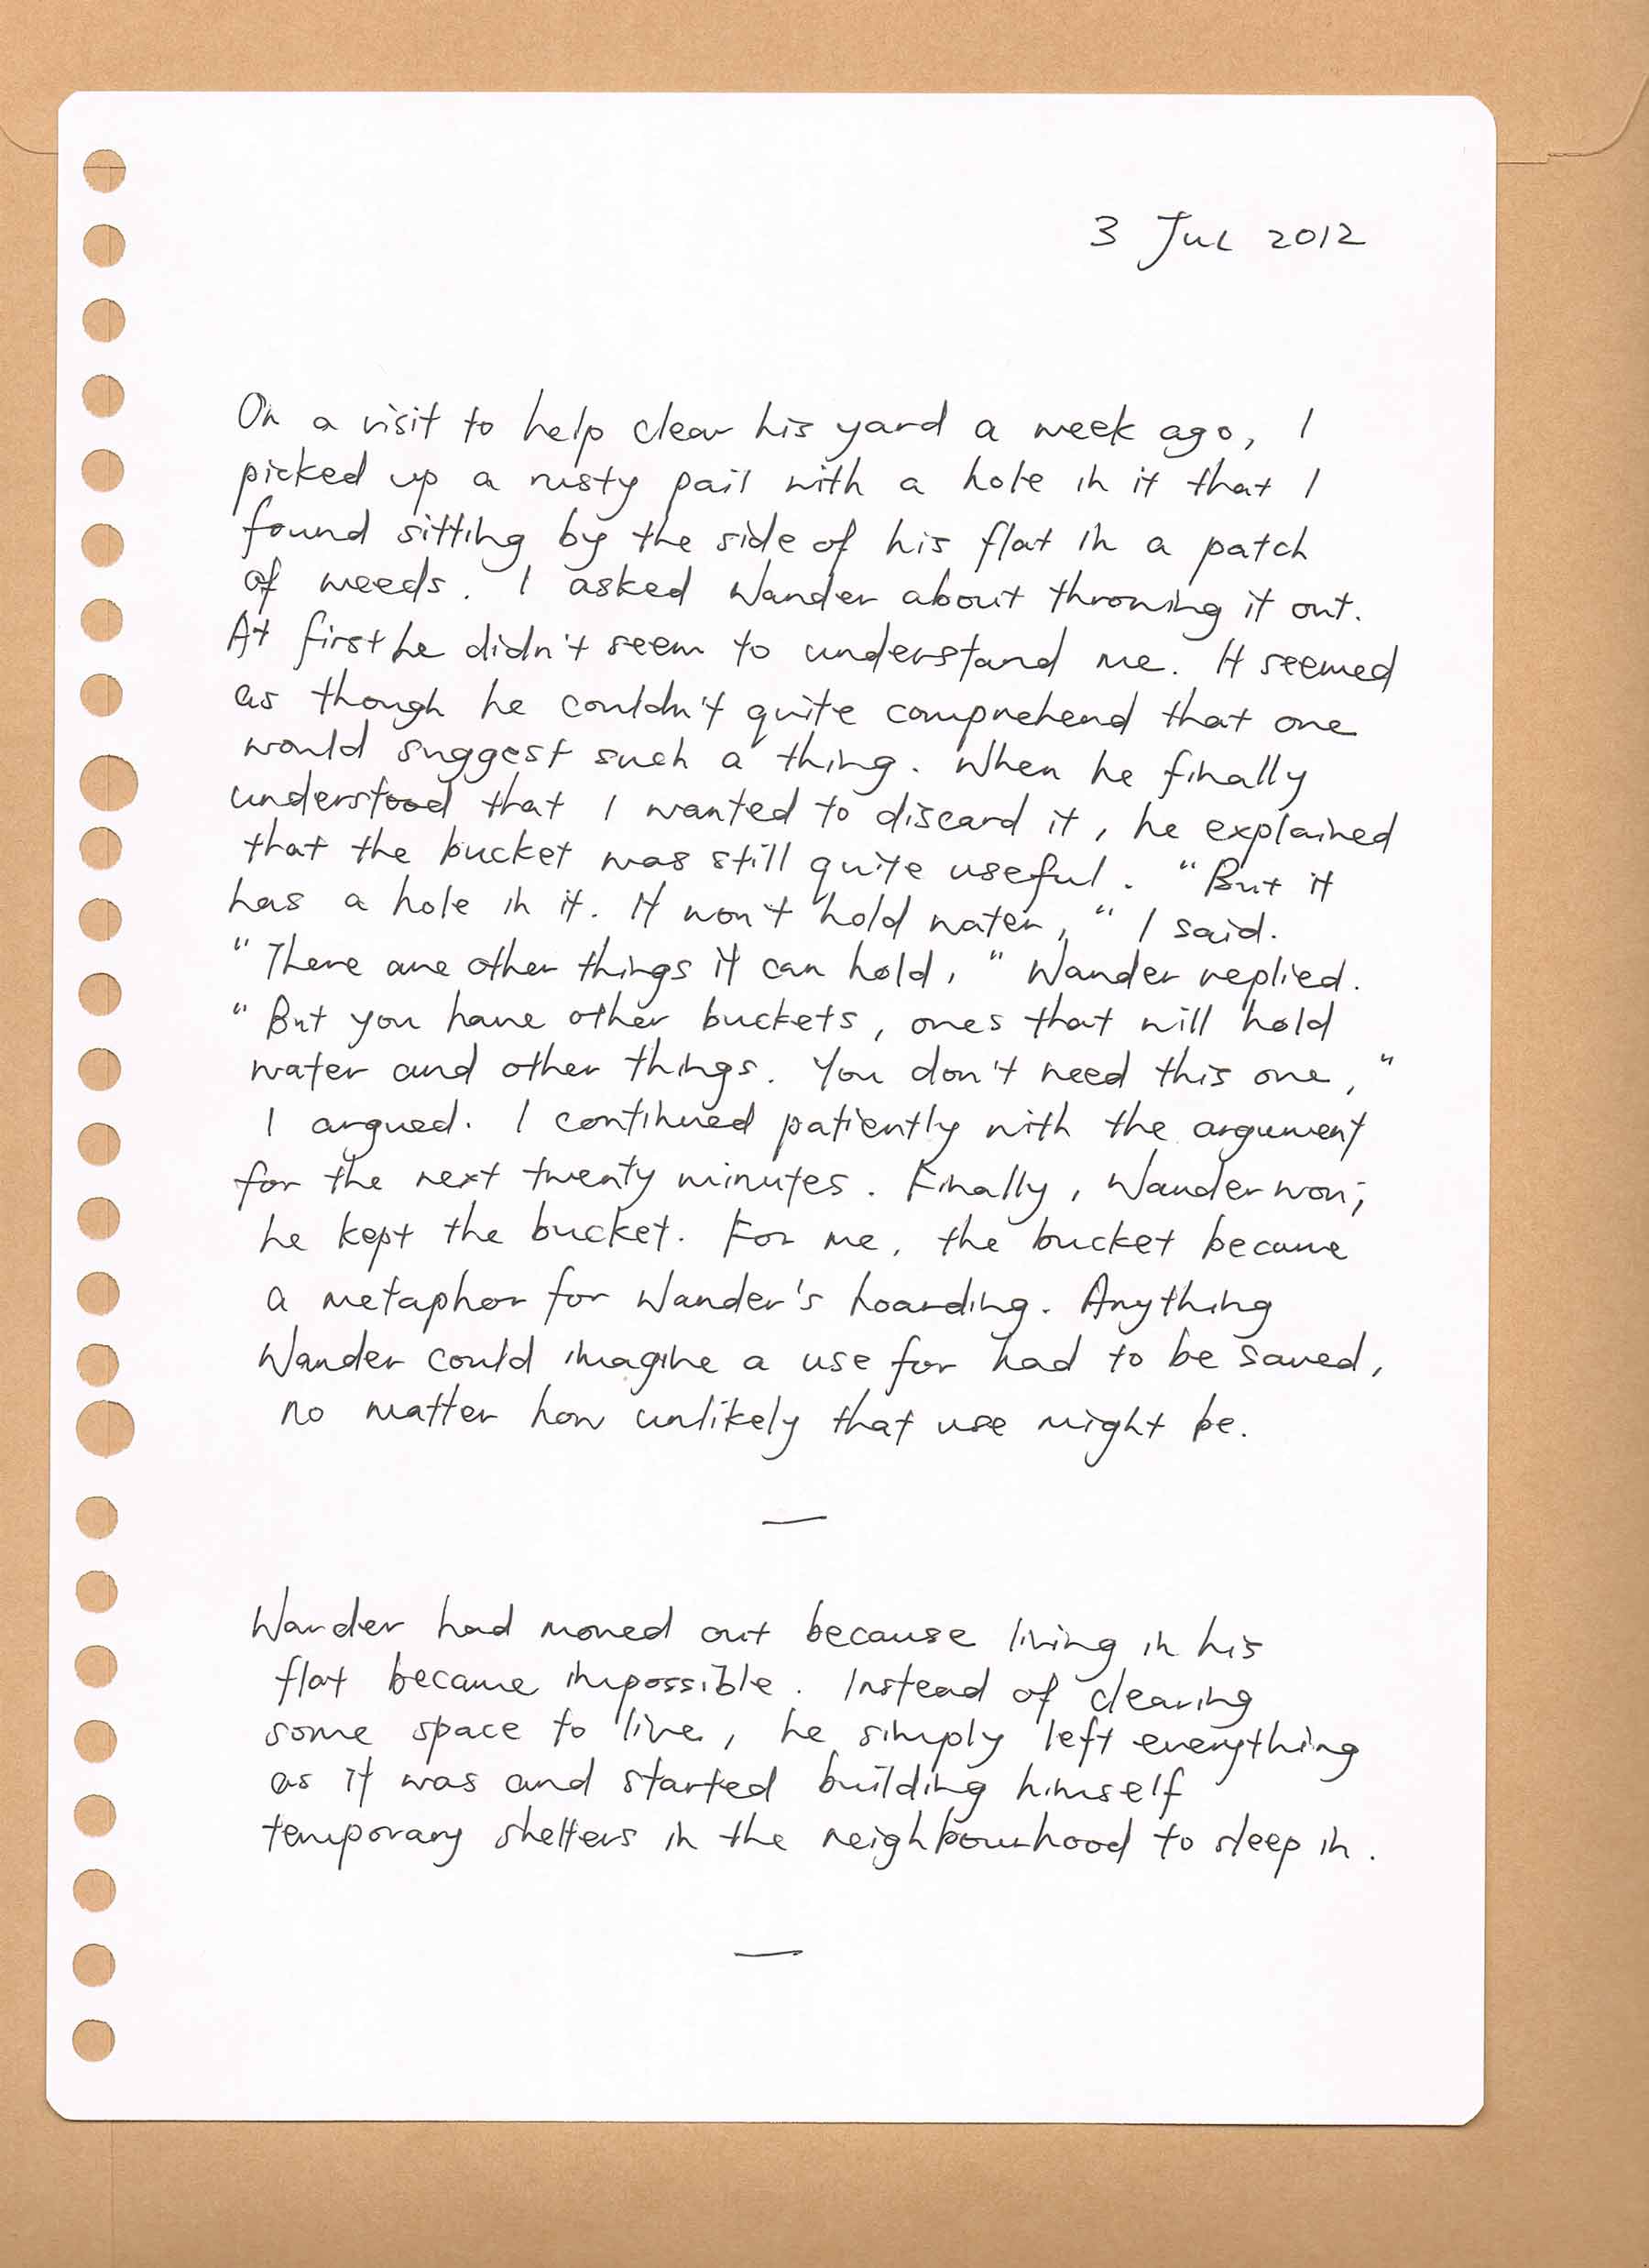 3 Jul 2012
On a visit to help clear his yard a week ago, I
picked up a rusty pail with a hole in it that I
found sitting by the side of his flat in a patch
of weeds. I asked Wander about throwing it out.
At first he didn't seem to understand me. It seemed
as though he couldn't quite comprehend that one
would suggest such a thing. When he finally
understood that I wanted to discard it, he explained
that the bucket was still quite useful. "But it
has a hole in it. It won't hold water," I said.
"There are other things it can hold," Wander replied.
"But you have other buckets, ones that will hold
water and other things. You don't need this one,"
I argued. I continued patiently with the argument
for the next twenty minutes. Finally, Wander won;
he kept the bucket. For me, the bucket became
a metaphor for Wander's hoarding. Anything
Wander could imagine a use for had to be saved,
no matter how unlikely that use might be.
—
Wander had moved out because living in his
flat became impossible. Instead of clearing
some space to live, he simply left everything
as it was and started building himself
temporary shelters in the neighbourhood to sleep in.
—